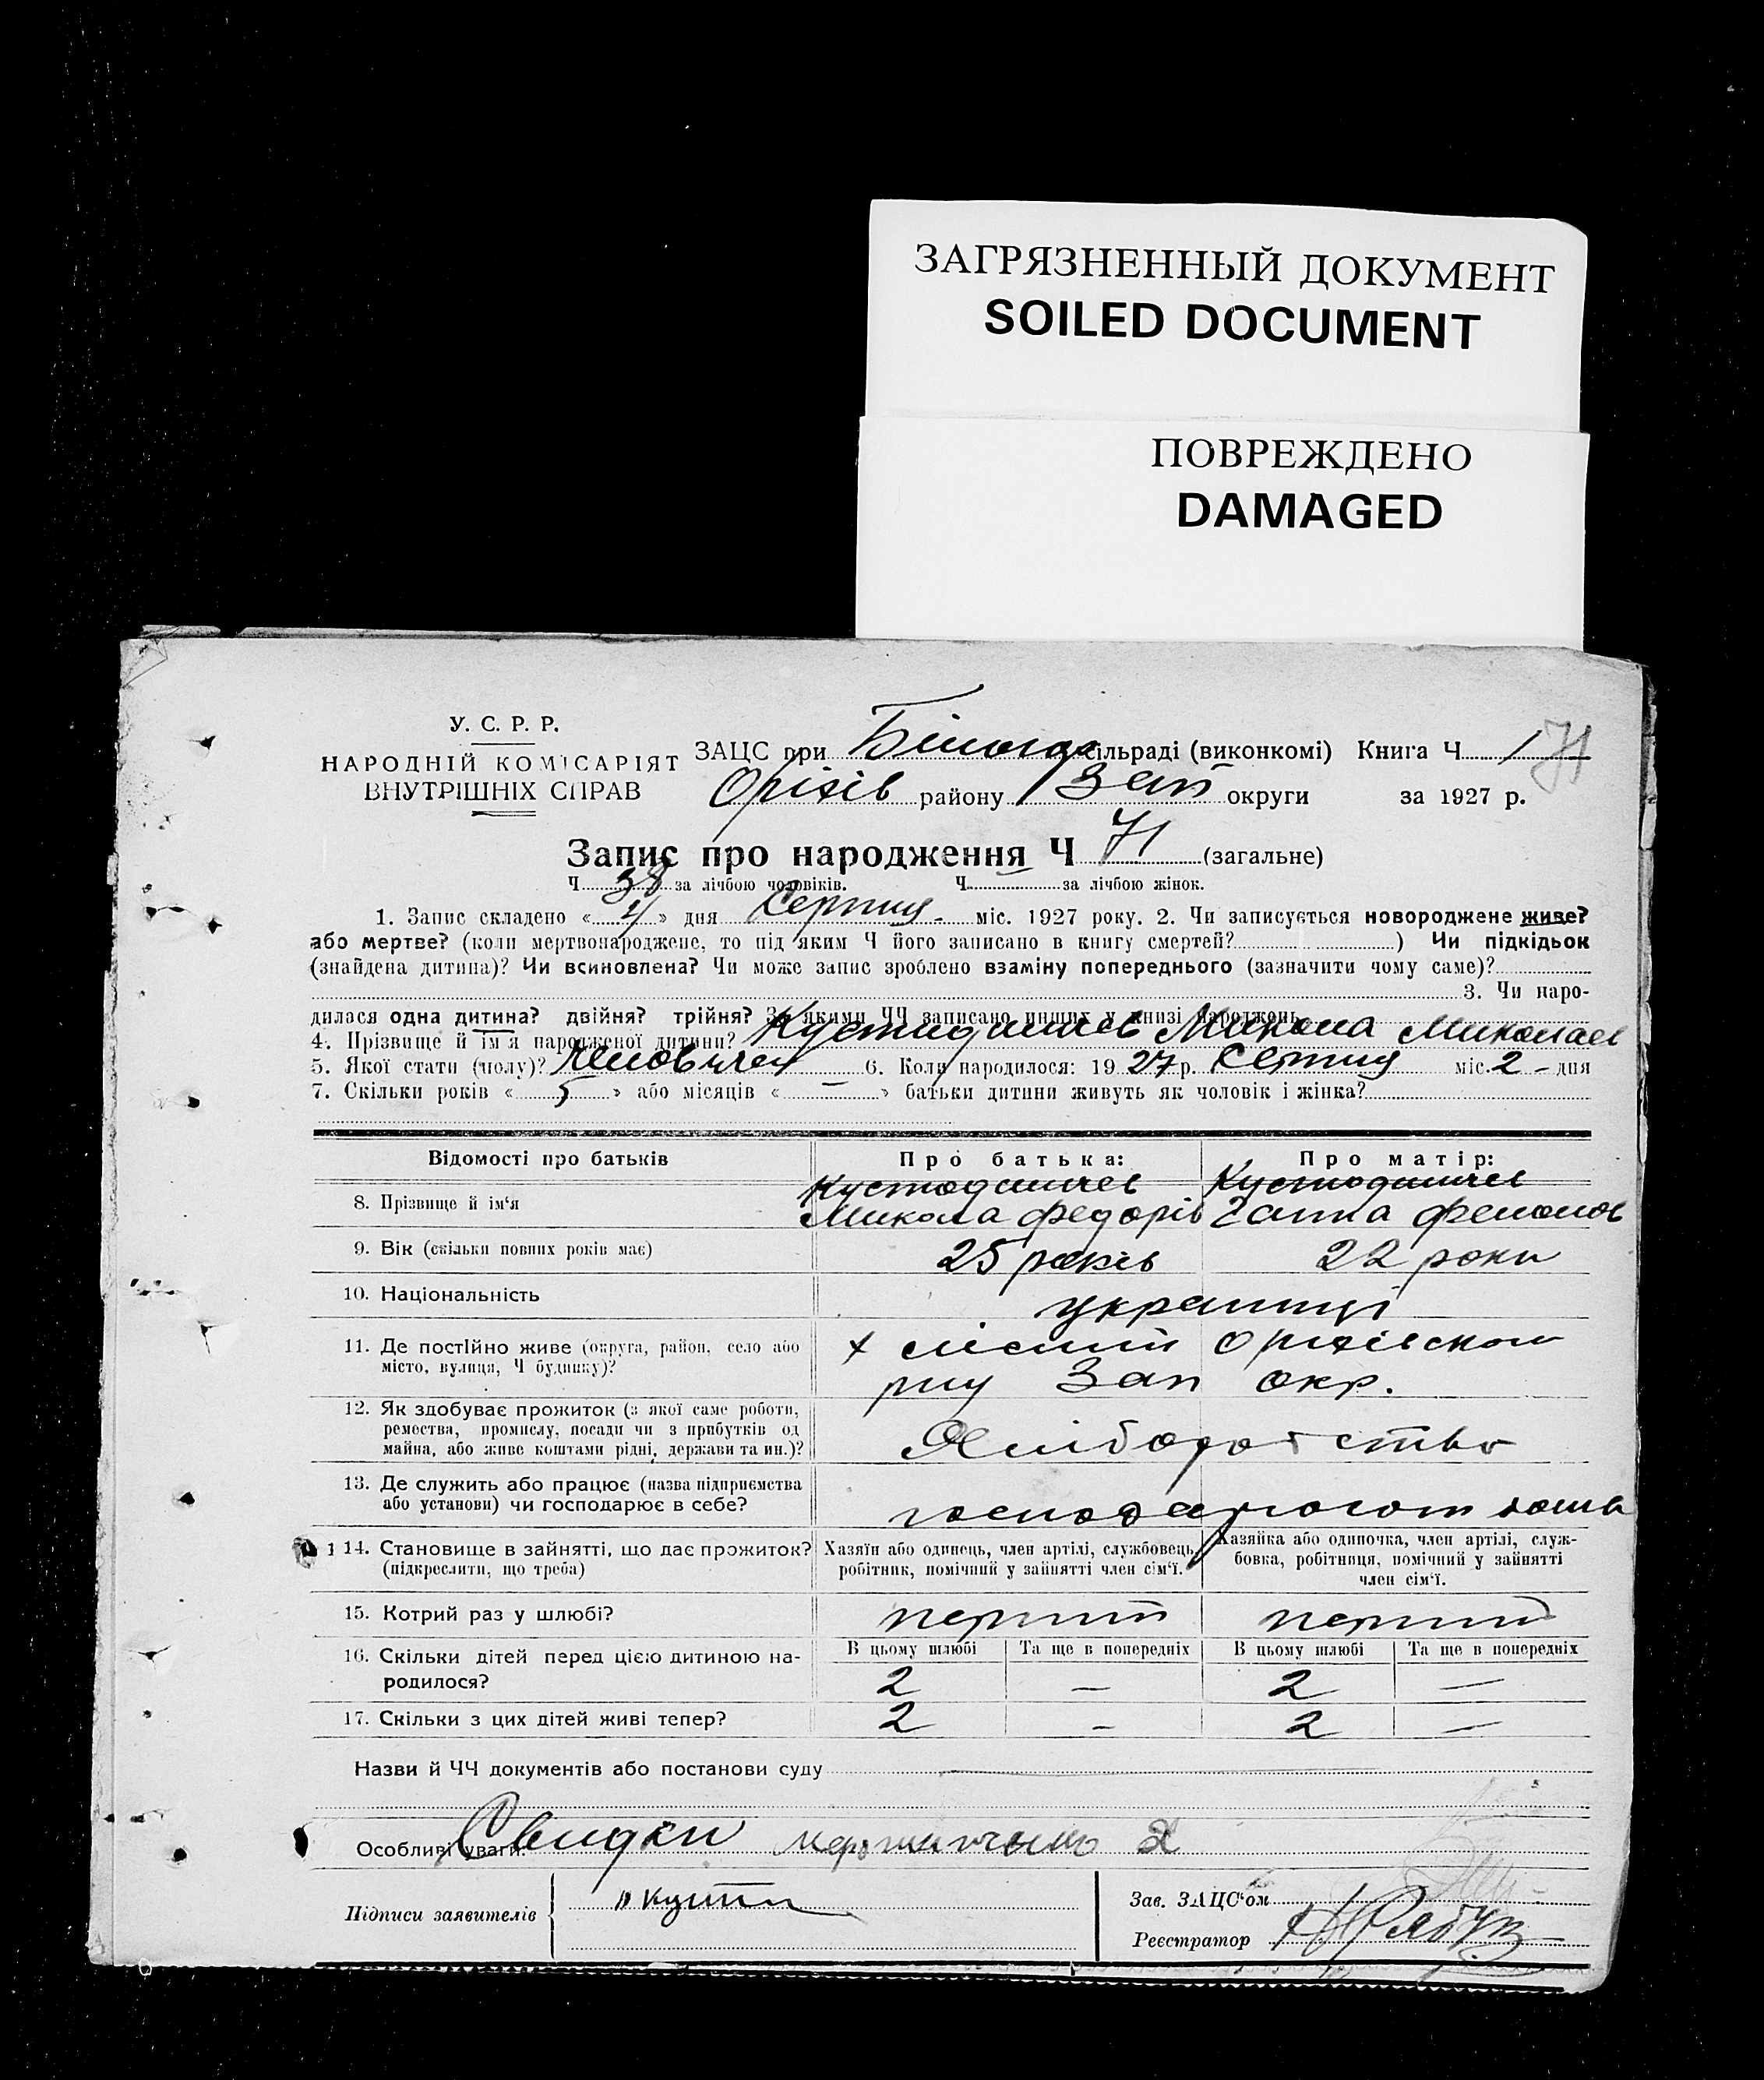 ЗАГРЯЗНЕННЫЙ ДОКУМЕНТ
SOILED DOCUMENT
ПОВРЕЖДЕНО
DAMAGED
У. С. Р. Р.
НАРОДНІЙ КОМІСАРІЯТ
ВНУТРІШНІХ СПРАВ
ЗАЦС при сільраді (виконкомі) Книга Ч 1 71
Оріхів району Зап округи за 1927 р.
Запис про народження Ч 71 (загальне)
Ч 38 за лічбою чоловіків. Ч за лічбою жінок.
1. Запис складено « 4 » дня Серпня міс. 1927 року. 2. Чи записується новороджене живе?
або мертве? (коли мертвонароджене, то під яким Ч його записано в книгу смертей? ) Чи підкідьок
(знайдена дитина)? Чи всиновлена? Чи може запис зроблено взаміну попереднього (зазначити чому саме)?
3. Чи наро-
дилася одна дитина? двійня? трійня? З якими ЧЧ записано инших у книзі народжень
4. Прізвище й ім'я народженої дитини? Микола Миколаев
5. Якої стати (полу)? 6. Коли народилося: 19 27 р. Серпня міс. 2 - дня
7. Скільки років « 5 » або місяців « — » батьки дитини живуть як чоловік і жінка?
Відомості про батьків
Про батька:
Про матір:
8. Прізвище й ім'я
Микола Федорів
Ганна
9. Вік (скільки повних років має) 25 років 22 роки
10. Національність українці
11. Де постійно живе (округа, район, село або
місто, вулиця, Ч будинку)?
Оріхівськом
рну Зап окр.
12. Як здобуває прожиток (з якої саме роботи,
ремества, промислу, посади чи з прибутків од
майна, або живе коштами рідні, держави та ин.)?
13. Де служить або працює (назва підприємства
або установи) чи господарює в себе?
14. Становище в зайнятті, що дає прожиток?
(підкреслити, що треба)
Хазяїн або одинець, член артілі, службовець,
робітник, помічний у зайнятті член сім'ї.
Хазяйка або одиночка, член артілі, служ-
бовка, робітниця, помічний у зайнятті
член сім'ї.
15. Котрий раз у шлюбі? перший перший
16. Скільки дітей перед цією дитиною на-
родилося?
В цьому шлюбі Та ще в попередніх В цьому шлюбі Та ще в попередніх
2 — 2 —
17. Скільки з цих дітей живі тепер? 2 — 2 —
Назви й ЧЧ документів або постанови суду
Особливі уваги: Свидки
Підписи заявителів
Зав. ЗАЦС'ом
Реєстратор